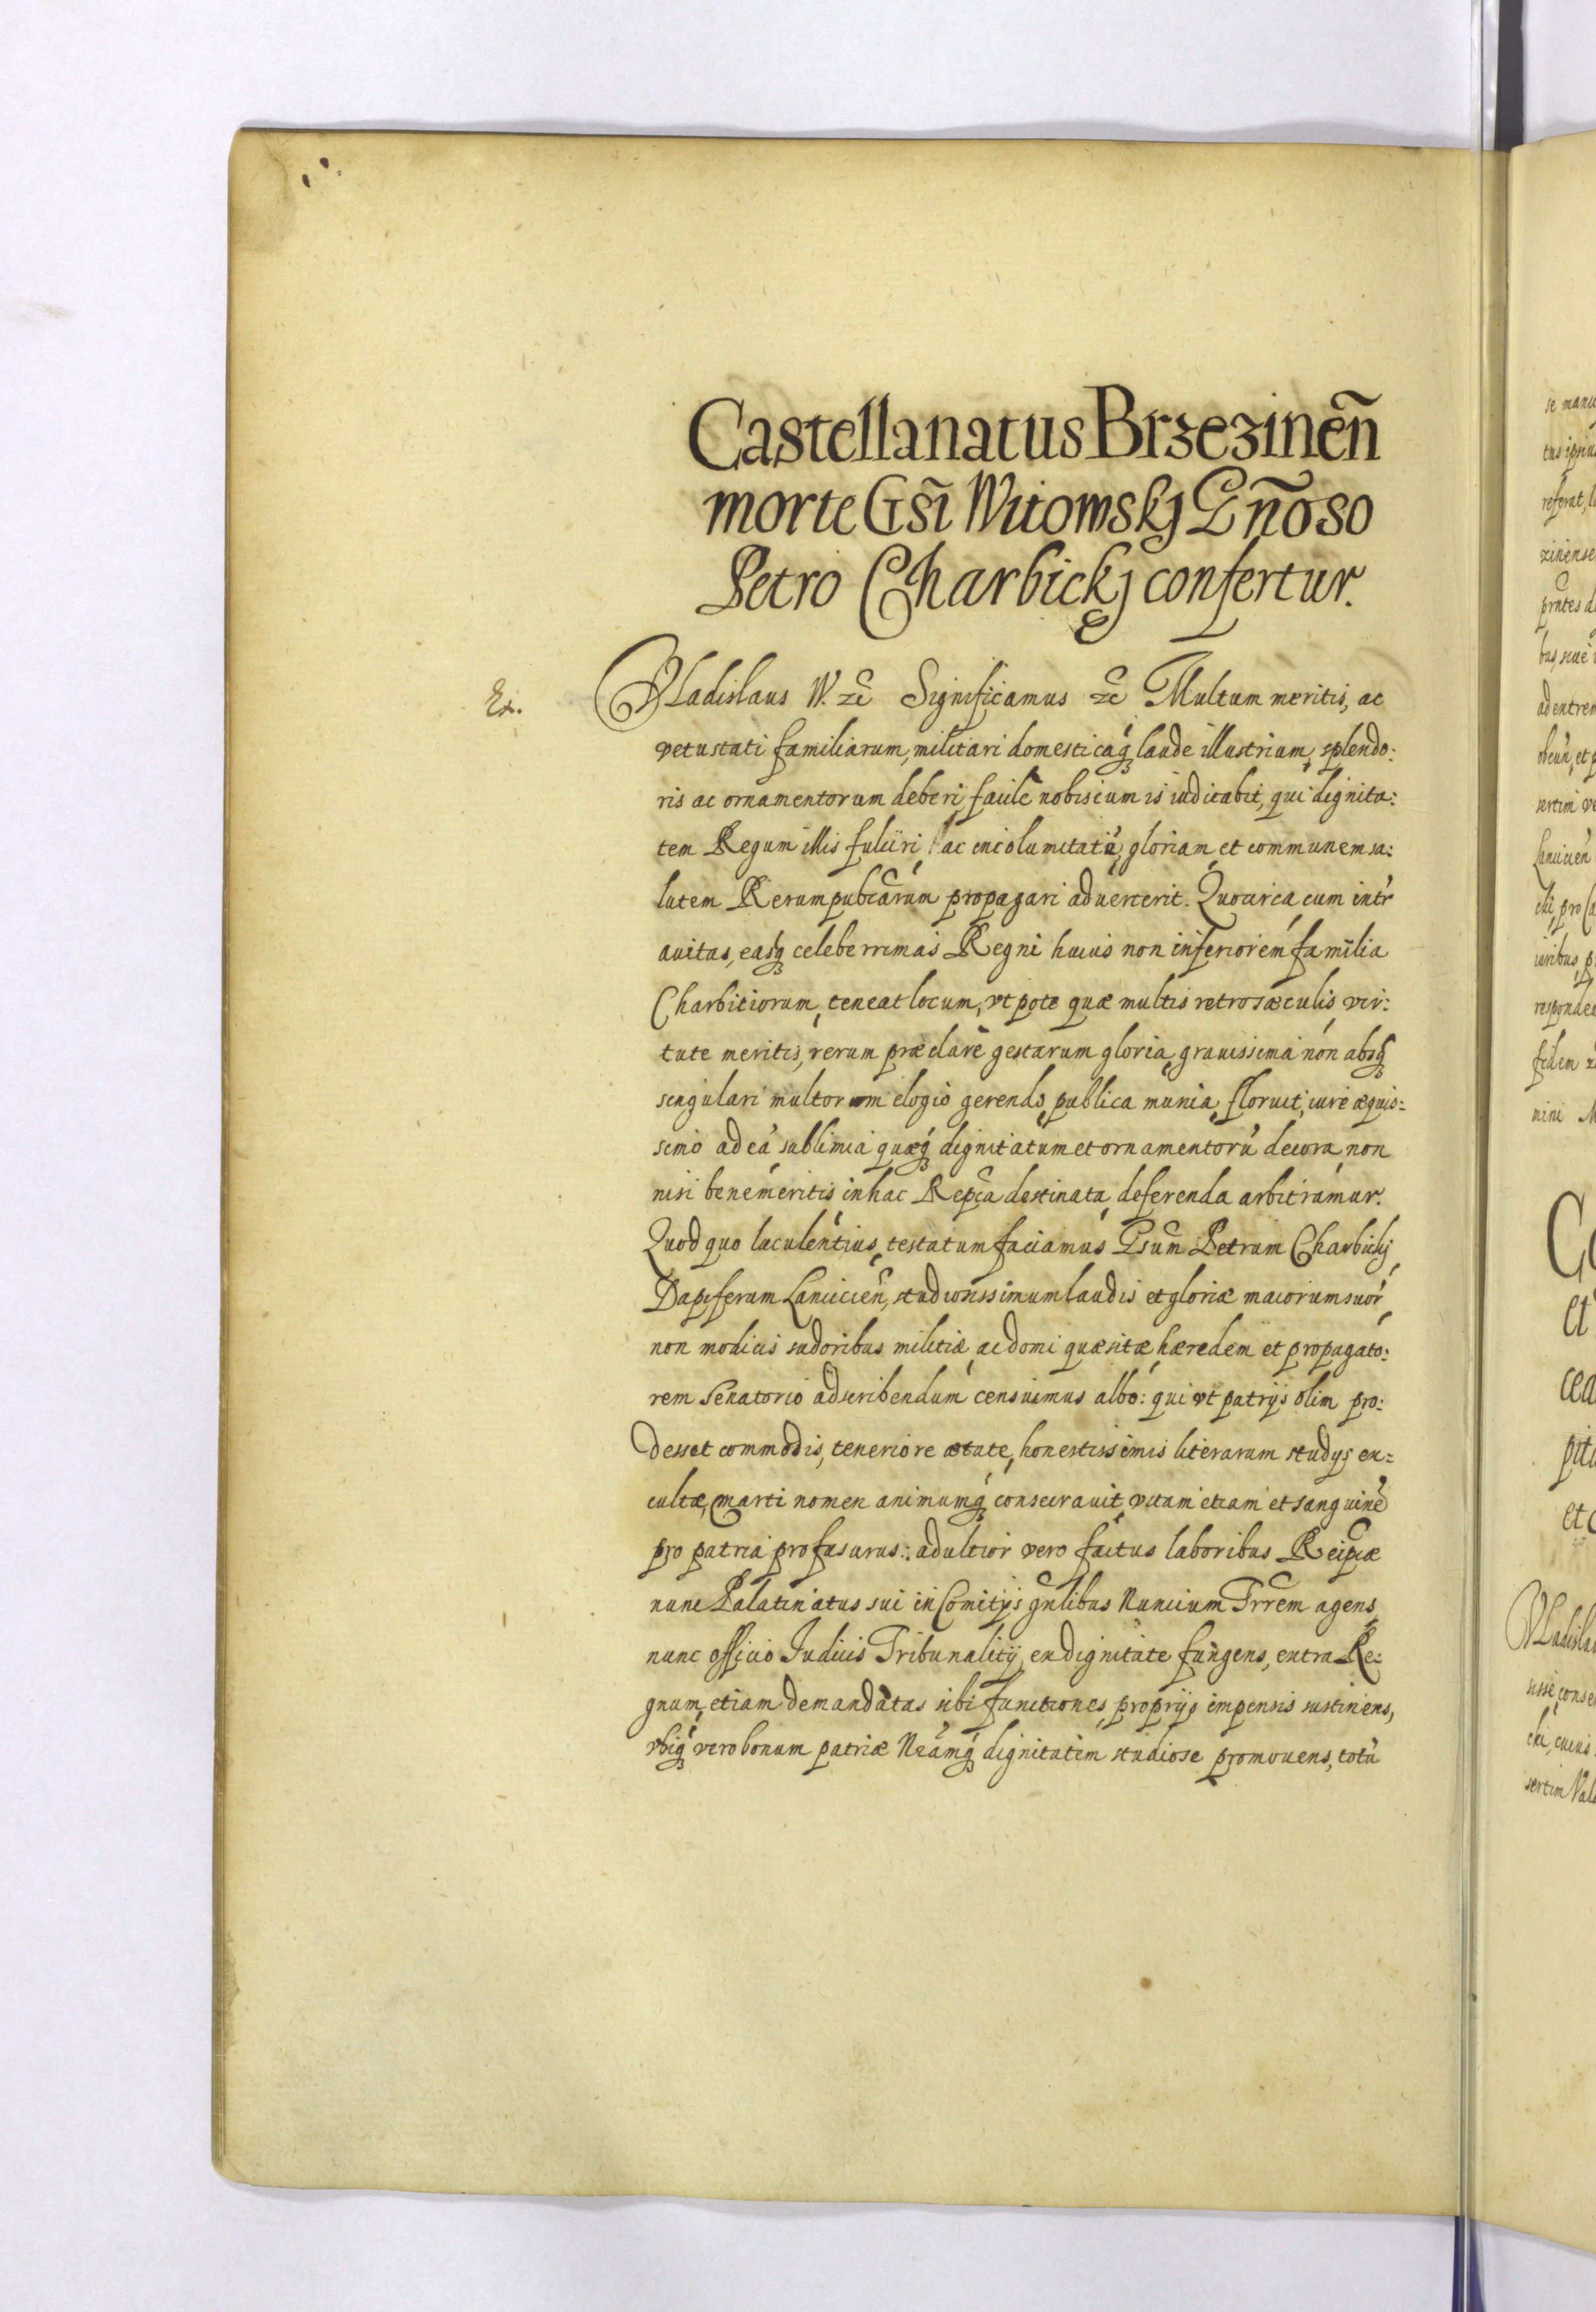 Castellanatus Brzezineñ
morte Gs̃i Witowskj Gñoso
Petro Charbickj confertur.
Ex.
Vladislaus IV. zc Significamus zc Multum meritis, ac
vetustati familiarum, militari domesticáq laude illustrium, splendo:
ris ac ornamentorum deberi, facilè nobiscum is iudicabit, qui dignita:
tem Regum illis fulciri, ac incolumitatẽ, gloriam et communem sa:
lutem Rerumpubcarum propagari aduerterit. Quocirca cum intr
auitas, easq celeberrimas Regni huius non inferiorem familia
Charbiciorum, teneat locum, vt pote quæ multis retro sæculis, vir:
tute meritis, rerum præclarè gestarum gloria, grauissima non absq
singulari multorum elogio gerendo, publica munia, floruit, iure æquis=
simo ad eá sublimia quæq́ dignitatum et ornamentorũ decora, non
nisi benemeritis in hac Repca destinata, deferenda arbitramur.
Quod quo luculentius, testatum faciamus Gsum Petrum Charbickj
Dapiferum Lancicien, studiosissimum laudis et gloriæ maiorum suor
non modicis sudoribus militiæ, ac domi quæsitæ, hæredem et propagato:
rem Senatorio adscribendum censuimus albo: qui vt patrijs olim pro:
desset commodis, teneriore ætate, honestissimis literarum studijs ex=
cultæ, Marti nomen animumq́ consecrauit, vitam etiam et sanguinẽ
pro patria profusurus: adultior vero factus laboribus Reipcæ
nunc Palatinatus sui in Comitijs gnlibus Nuncium Trrem agens,
nunc officio Iudicis Tribunalitij, ex dignitate fungens, extra Re:
gnum, etiam demandatas sibi functiones, proprijs impensis sustinens,
vbiq́ vero bonum patriæ Nrãmq́ dignitatem studiose promouens, totũ